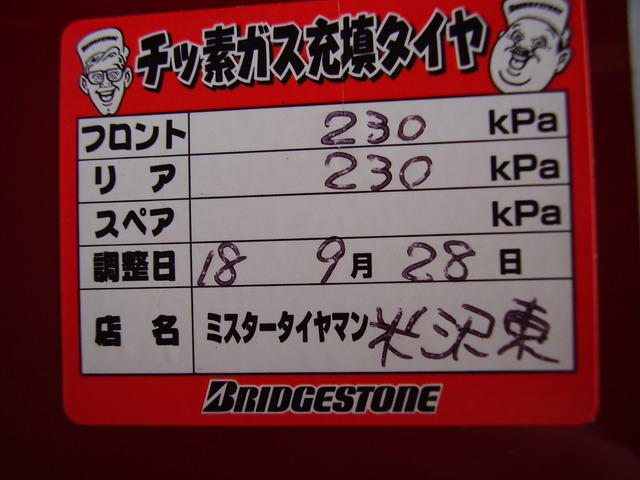 チッ素ガス充填タイヤ
フロント 230 kPa
リア 230 kPa
スペア kPa
調整日 18 9月 28日
店名 ミスタータイヤマン 米沢東
BRIDGESTONE